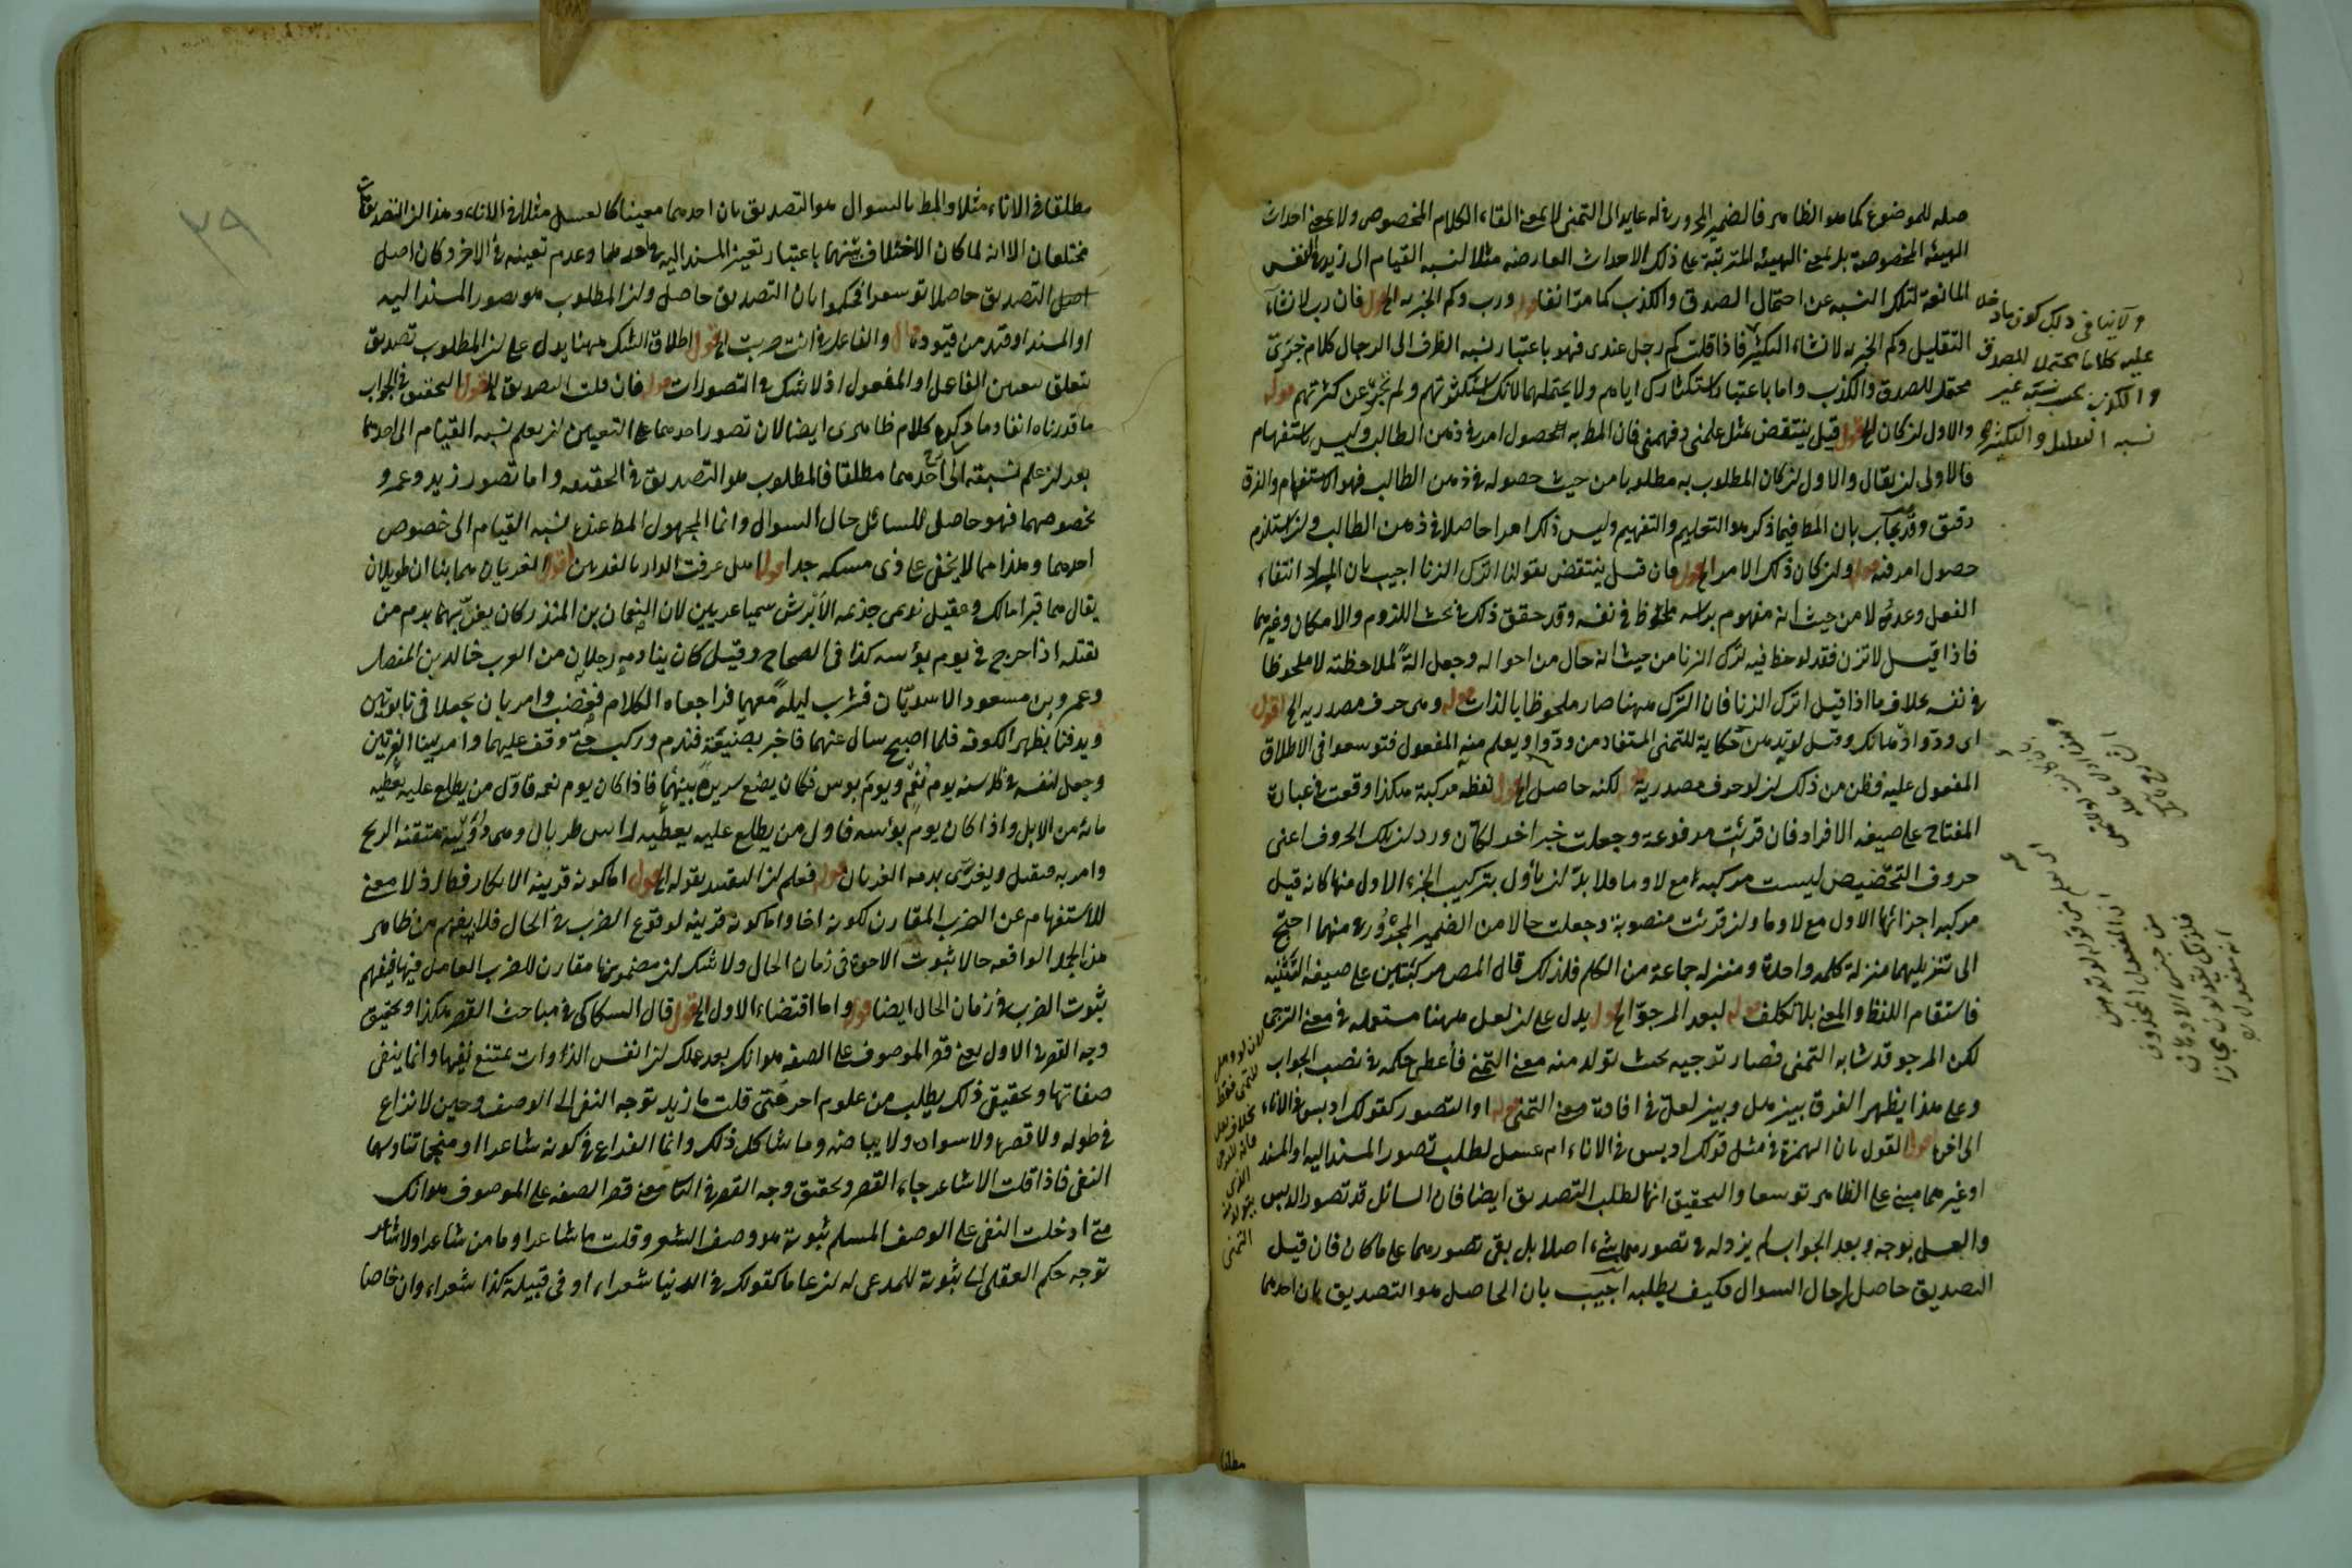 صلة للموضوع كما هو الظاهر فالضمير المجرور في له عايد الى التمنى لا بمعنى القاء الكلام المخصوص ولا بمعنى احداث
الهيئة المخصوصة بل بمعنى الهيئة المترتبة على ذلك الاحداث العارضة مثلا لنسبة القيام الى زيد في النفس
المانعة لتلك النسبة عن احتمال الصدق والكذب كما مر انفا قوله ورب وكم الخبرية الخ اقول فان رب لانشاء
التقليل وكم الخبرية لانشاء التكثير فاذا قلت كم رجل عندى فهو باعتبار نسبة الظرف الى الرجال كلام خبرى
محتمل للصدق والكذب واما باعتبار استكثارك اياهم ولا يحتملهما لانك استكثرتهم ولم تخبر عن كثرتهم قوله
والاول ان كان الخ اقول قيل ينتقض بمثل علمنى وفهمنى فان المط به حصول امر في ذهن الطالب وليس باستفهام
فالاولى ان يقال والاول ان كان المطلوب به مطلوبا من حيث حصوله في ذهن الطالب فهو الاستفهام والفرق
دقيق وقد يجاب بان المط فيما ذكر هو التعليم والتفهيم وليس ذلك امرا حاصلا في ذهن الطالب وان استلزم
حصول امر فيه قوله وان كان ذلك الامر الخ اقول فان قيل ينتقض بقولنا اترك الزنا اجيب بان المراد انتفاء
الفعل وعدمه لا من حيث انه مفهوم براسه ملحوظ في نفسه وقد حقق ذلك في بحث اللزوم والامكان وغيرهما
فاذا قيل لا تزن فقد لوحظ فيه ترك الزنا من حيث انه حال من احواله وجعل الة لملاحظته لا ملحوظا
في نفسه بخلاف ما اذا قيل اترك الزنا فان الترك ههنا صار ملحوظا بالذات قوله وهى حرف مصدرية الخ اقول
اى ودوا ادهانك وقيل لو تدهن حكاية للتمنى المستفاد من ودوا ويعلم منه المفعول فتوسعوا فى الاطلاق
المفعول عليه فظن من ذلك ان لو حرف مصدرية قوله لكنه حاصل الخ اقول لفظه مركبة هكذا وقعت في عبارة
المفتاح على صيغة الافراد فان قرئت مرفوعة وجعلت خبرا اخر لكان ورد ان تلك الحروف اعنى
حروف التحضيض ليست مركبة مع لا وما فلا بد ان يأول بتركيب الجزء الاول منها كانه قيل
مركبة اجزائها الاول مع لا وما وان قرئت منصوبة وجعلت حالا من الضمير المجرور في منهما احتيج
الى تنزيلهما منزلة كلمة واحدة ومنزلة جماعة من الكلم فلذلك قال المص مركبتين على صيغة التثنية
فاستقام اللفظ والمعنى بلا تكلف قوله لبعد المرجو الخ اقول يدل على ان لعل ههنا مستعملة في معنى الترجى
لكن المرجو قد شابه التمنى فصار توجيه بحيث تولد منه معنى التمنى فأعطى حكمه في نصب الجواب
وعلى هذا يظهر الفرق بين هل وبين لعل في افادة معنى التمنى قوله او التصور كقولك ادبس في الاناء
الى اخره اقول القول بان الهمزة في مثل قولك ادبس في الاناء ام عسل لطلب تصور المسند اليه او المسند
او غيرهما مبنى على الظاهر توسعا والتحقيق انها لطلب التصديق ايضا فان السائل قد تصور الدبس
والعسل بوجه وبعد الجواب لم يزد له في تصورهما شىء اصلا بل بقى تصورهما على ما كان فان قيل
التصديق حاصل له حال السوال فكيف يطلبه اجيب بان الحاصل هو التصديق بان احدهما
ولا ينافى ذلك كون ما دخل
عليه كلاما محتملا للصدق
والكذب بحسب نسبة غير
نسبة التقليل والتكثير
لان لو وهل
للتمنى فقط
بخلاف لعل
فانه للترجى
الذى
يتولد منه
التمنى
مطلقا
٣٩
مطلقا في الاناء مثلا والمط بالسوال هو التصديق بان احدهما معينا كالعسل مثلا في الاناء وهذان التصديقان
مختلفان الا انه لما كان الاختلاف بينهما باعتبار تعين المسند اليه في احدهما وعدم تعينه في الاخر وكان اصل
التصديق حاصلا توسعوا فحكموا بان التصديق حاصل وان المطلوب هو تصور المسند اليه
او المسند او قيد من قيوده قال والفاعل في انت ضربت الخ اقول اطلاق الشك ههنا يدل على ان المطلوب تصديق
يتعلق بتعيين الفاعل او المفعول اذ لا شك في التصورات قوله فان قلت التصديق الخ اقول التحقيق في الجواب
ما قدرناه انفا وما ذكره كلام ظاهرى ايضا لان تصور احدهما على التعيين ان يعلم نسبة القيام الى احدهما
بعد ان علم نسبته الى احدهما مطلقا فالمطلوب هو التصديق في الحقيقة واما تصور زيد وعمرو
بخصوصهما فهو حاصل للسائل حال السوال وانما المجهول المط عنده نسبة القيام الى خصوص
احدهما وهذا مما لا يخفى على ذى مسكة جدا قوله هل عرفت الدار بالغريين اقول الغريان هما بناان طويلان
يقال هما قبرا مالك وعقيل نديمى جذيمة الابرش سميا غريين لان النعمان بن المنذر كان يغريهما بدم من
يقتله اذا خرج في يوم بؤسه كذا فى الصحاح وقيل كان ينادمه رجلان من العرب خالد بن المفضل
وعمرو بن مسعود الاسديان فشرب ليلة معهما فراجعاه الكلام فغضب وامر بان يجعلا فى تابوتين
ويدفنا بظهر الكوفة فلما اصبح سال عنهما فاخبر بصنيعه فندم وركب حتى وقف عليهما وامر ببناء الغريين
وجعل لنفسه في كل سنة يوم نعيم ويوم بوس فكان يضع سريره بينهما فاذا كان يوم نعمه فاول من يطلع عليه يعطيه
مائة من الابل واذا كان يوم بؤسه فاول من يطلع عليه يعطيه راس ظربان وهى دويبة منتنة الريح
وامر به فيقتل ويغرى بدمه الغريان قوله فعلم ان التقييد بقوله الخ اقول اما كونه قرينة الانكار فظاهر اذ لا معنى
للاستفهام عن الضرب المقارن لكونه اخا واما كونه قرينة لوقوع الضرب في الحال فلانه يفهم من ظاهر
هذه الجملة الواقعة حالا ثبوت الاخوة فى زمان الحال ولا شك ان مضمونها مقارن للضرب العامل فيها فيفهم
ثبوت الضرب في زمان الحال ايضا قوله واما اقتضاء الاول الخ اقول قال السكاكى في مباحث القصر هكذا وتحقيق
وجه القصر في الاول يعنى قصر الموصوف على الصفة هو انك بعد علمك ان انفس الذوات يمتنع نفيها وانما ينفى
صفاتها وتحقيق ذلك يطلب من علوم اخر متى قلت ما زيد توجه النفى الى الوصف وحين لا نزاع
في طوله ولا قصره ولا سواده ولا بياضه وما شاكل ذلك وانما النزاع في كونه شاعرا او منجما تناولهما
النفى فاذا قلت الا شاعر جاء القصر وتحقيق وجه القصر في الثانى يعنى قصر الصفة على الموصوف هو انك
متى ادخلت النفى على الوصف المسلم ثبوته هو وصف الشعر وقلت ما شاعر او ما من شاعر او لا شاعر
توجه حكم العقل الى ثبوته للمدعى له ان عاما كقولك في الدنيا شعراء او فى قبيلة كذا شعراء وان خاصا